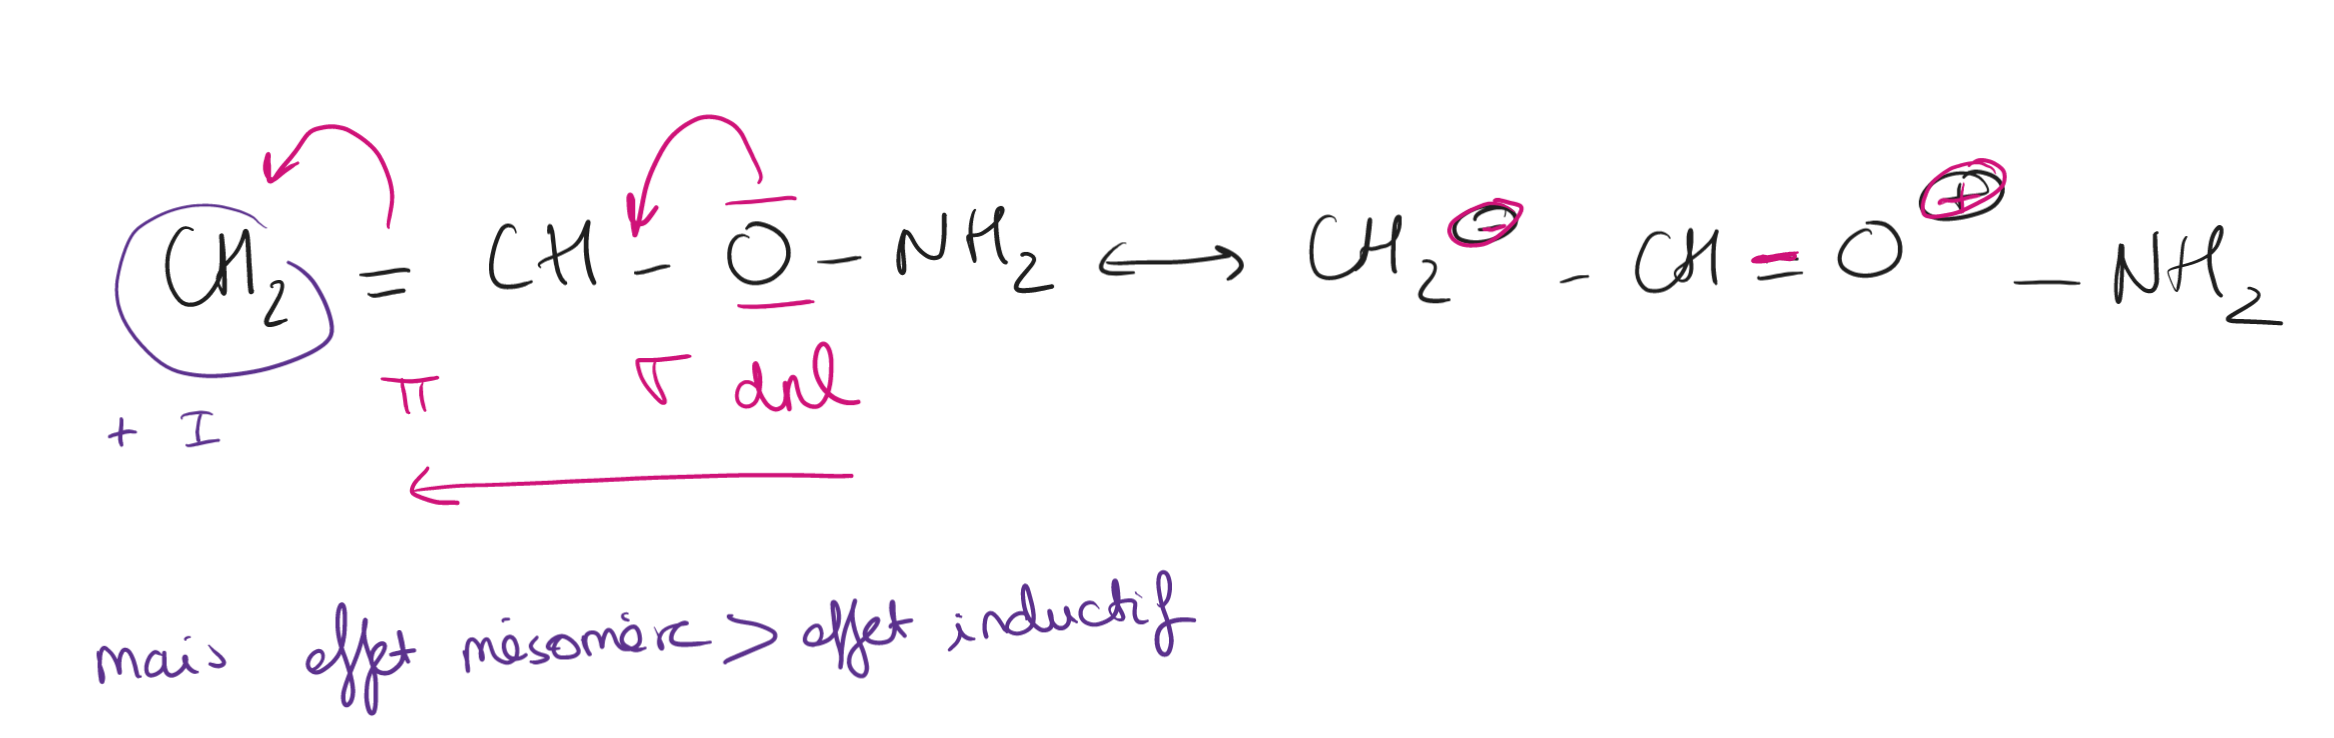 CH₂ = CH - O - NH₂ ⟷ CH₂⊖ - CH = O⊕ - NH₂
π σ dnl
+ I
mais effet mésomère > effet inductif